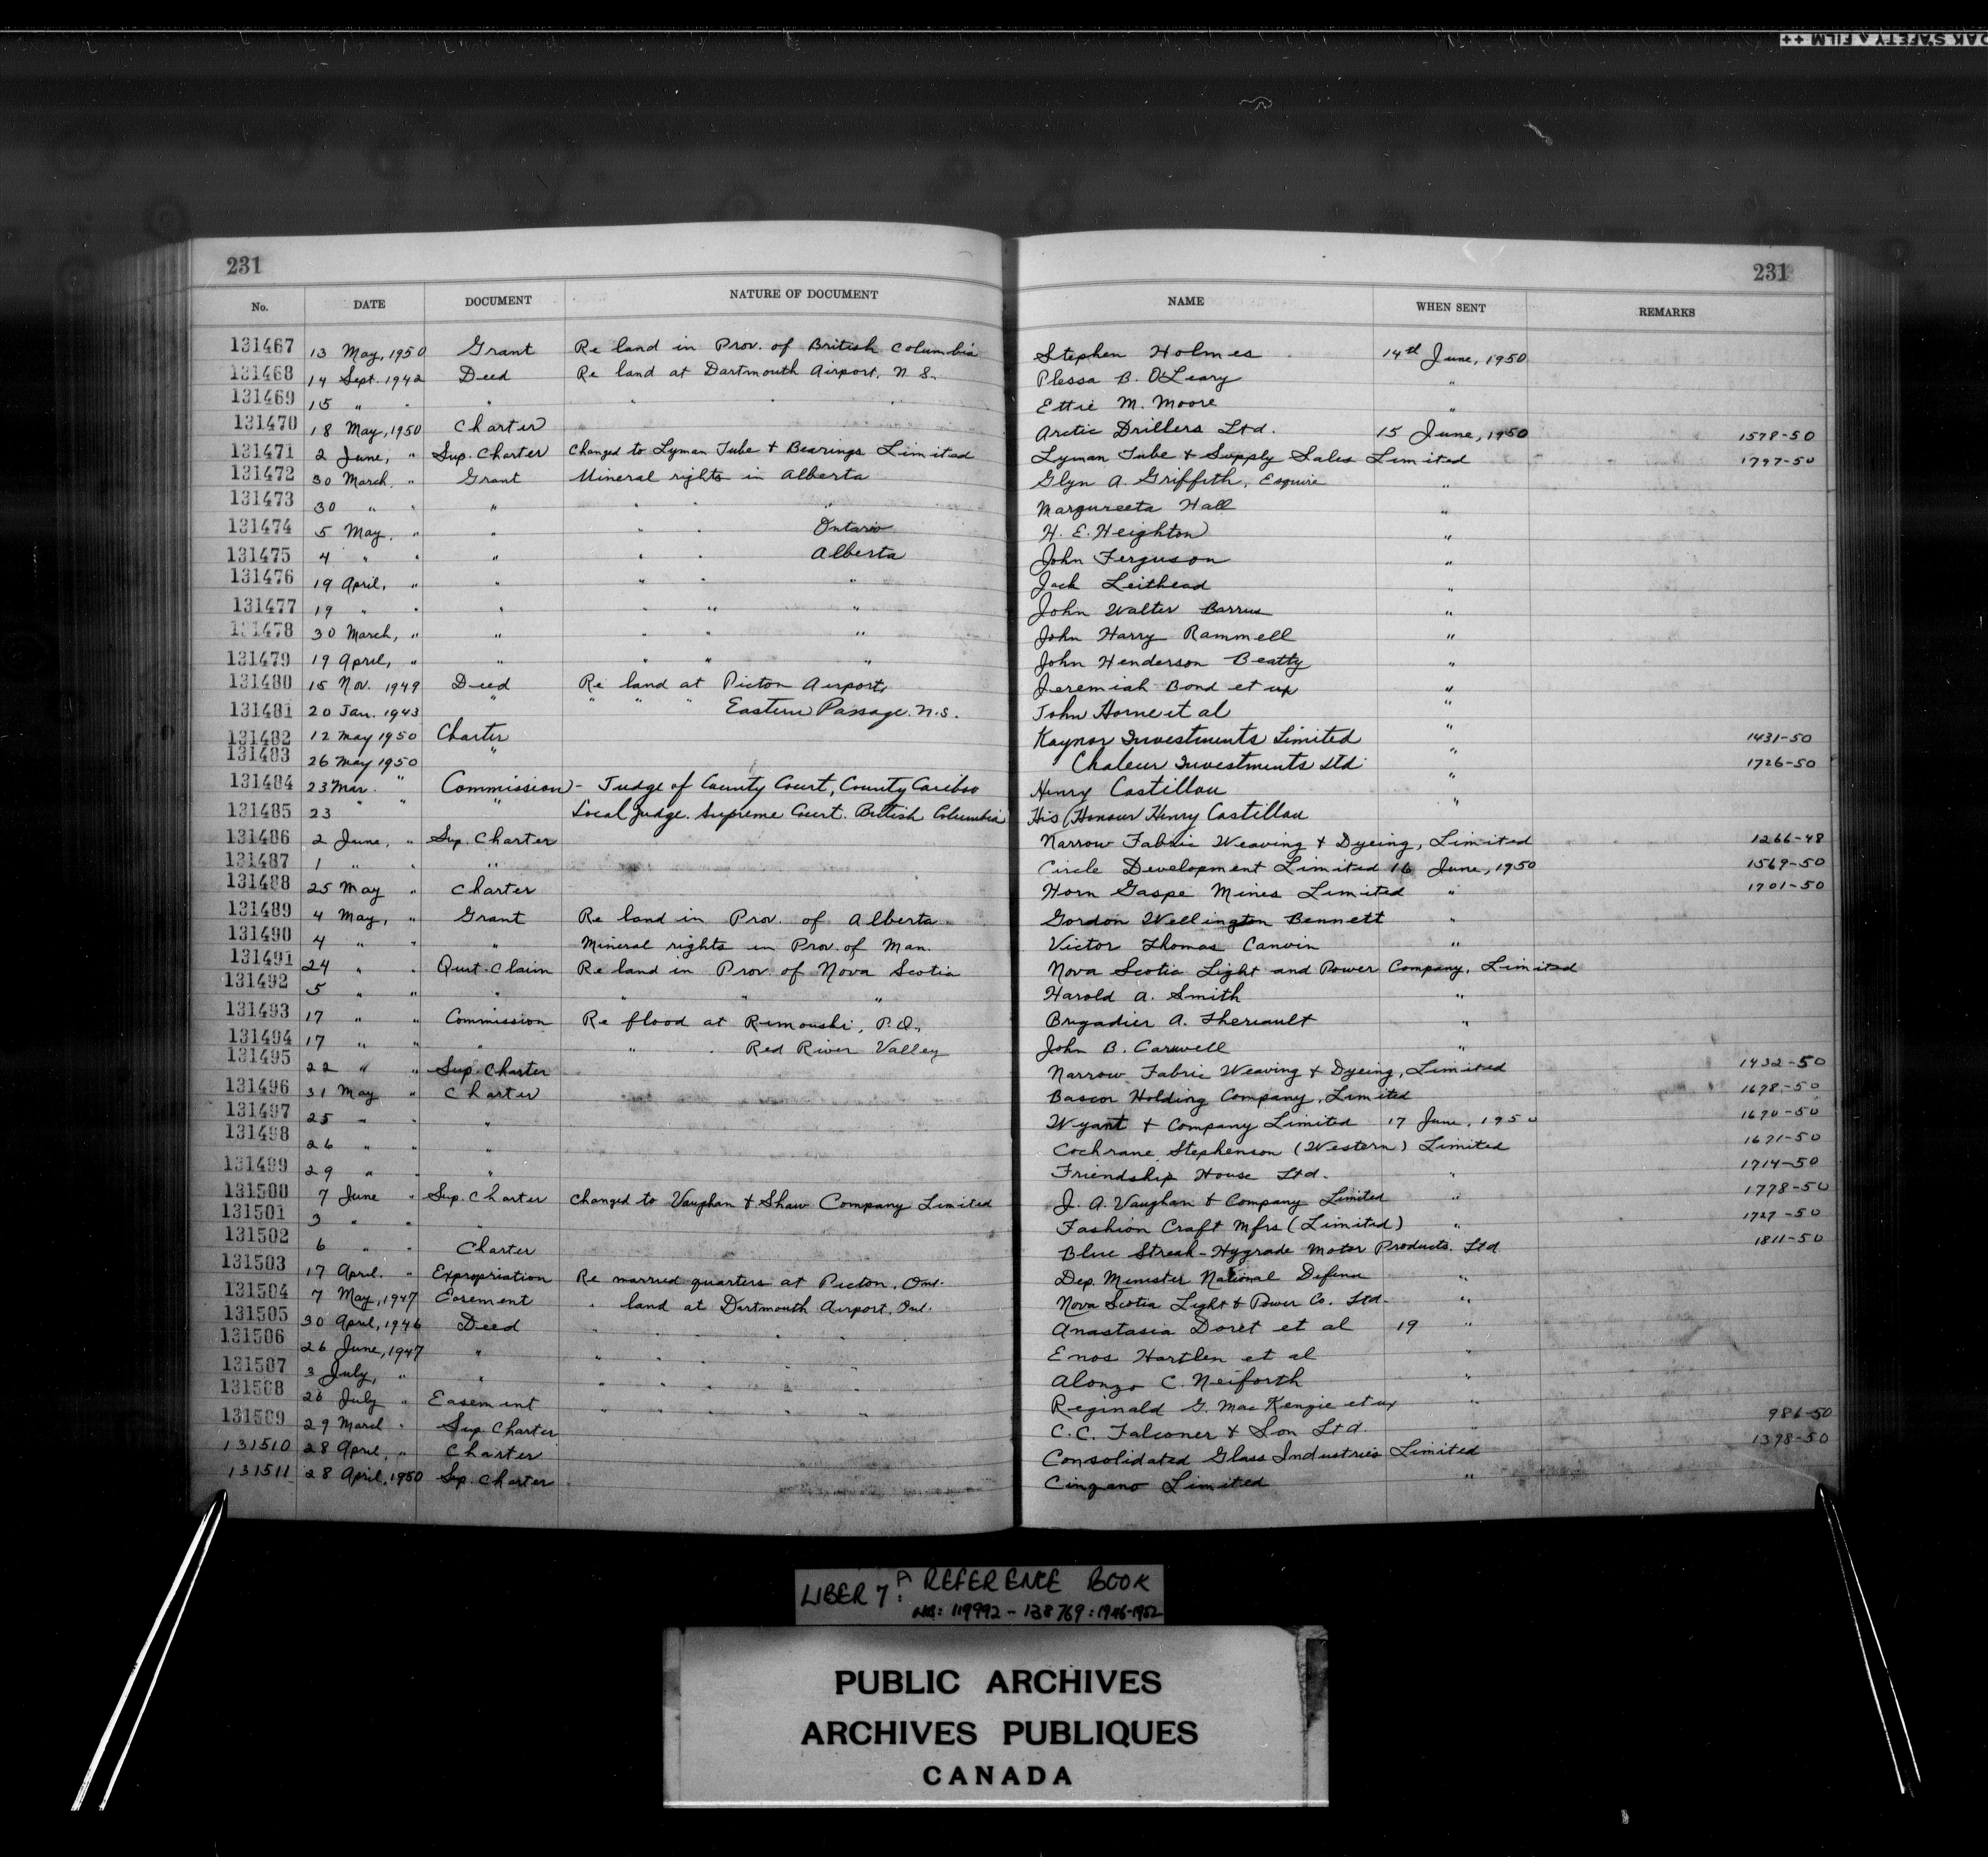 DAK SAFETY A FILM ++
231 231
No. DATE DOCUMENT NATURE OF DOCUMENT NAME WHEN SENT REMARKS
131467 13 May, 1950 Grant Re land in Prov. of British Columbia Stephen Holmes 14th June, 1950
131468 14 Sept. 1942 Deed Re land at Dartmouth Airport. N.S. Plessa B. O'Leary "
131469 15 " " " " " " Ettie M. Moore "
131470 18 May, 1950 Charter Arctic Drillers Ltd. 15 June, 1950 1578-50
131471 2 June, " Sup. Charter Changed to Lyman Tube & Bearings Limited Lyman Tube & Supply Sales Limited 1797-50
131472 30 March, " Grant Mineral rights in Alberta Glyn A. Griffith, Esquire "
131473 30 " " " " " " Margureeta Hall "
131474 5 May, " " " " Ontario H. E. Heighton "
131475 4 " " " " " Alberta John Ferguson "
131476 19 April, " " " " " Jack Leithead "
131477 19 " " " " " " John Walter Barrus "
131478 30 March, " " " " " John Harry Rammell "
131479 19 April, " " " " " John Henderson Beatty "
131480 15 Nov. 1949 Deed Re land at Picton Airport, Jeremiah Bond et ux "
131481 20 Jan. 1943 " " " " Eastern Passage. N.S. John Horne et al "
131482 12 May 1950 Charter Kaynor Investments Limited " 1431-50
131483 26 May 1950 " Chaleur Investments Ltd. " 1726-50
131484 23 Mar. " Commission - Judge of County Court, County Cariboo Henry Castillou "
131485 23 " " " Local Judge. Supreme Court. British Columbia His Honour Henry Castillou "
131486 2 June, " Sup. Charter Narrow Fabric Weaving & Dyeing, Limited 1266-48
131487 1 " " " Circle Development Limited 16 June, 1950 1569-50
131488 25 May " Charter Horn Gaspe Mines Limited " 1701-50
131489 4 May, " Grant Re land in Prov. of Alberta Gordon Wellington Bennett "
131490 4 " " " Mineral rights in Prov. of Man. Victor Thomas Canvin "
131491 24 " " Quit-Claim Re land in Prov. of Nova Scotia Nova Scotia Light and Power Company, Limited
131492 5 " " " " " " Harold A. Smith "
131493 17 " " Commission Re flood at Rimouski, P.Q., Brigadier A. Theriault "
131494 17 " " " " " Red River Valley John B. Carswell "
131495 22 " " Sup. Charter Narrow Fabric Weaving & Dyeing, Limited 1432-50
131496 31 May " Charter Bascor Holding Company, Limited 1698-50
131497 25 " " " Wyant & Company Limited 17 June, 1950 1690-50
131498 26 " " " Cochrane, Stephenson (Western) Limited 1691-50
131499 29 " " " Friendship House Ltd. " 1714-50
131500 7 June " Sup. Charter Changed to Vaughan & Shaw Company Limited J. A. Vaughan & Company Limited " 1778-50
131501 3 " " " Fashion Craft Mfrs (Limited) " 1727-50
131502 6 " " Charter Blue Streak-Hygrade Motor Products. Ltd. 1811-50
131503 17 April. " Expropriation Re married quarters at Picton, Ont. Dep. Minister National Defence "
131504 7 May, 1947 Easement " land at Dartmouth Airport, Ont. Nova Scotia Light & Power Co. Ltd. "
131505 30 April, 1946 Deed " " " " " Anastasia Doret et al 19 "
131506 26 June, 1947 " " " " " " Enos Hartlen et al "
131507 3 July, " " " " " " " Alonzo C. Neiforth "
131508 26 July " Easement " " " " " Reginald G. MacKenzie et ux "
131509 29 March " Sup Charter C.C. Falconer & Son Ltd. " 986-50
131510 28 April, " Charter Consolidated Glass Industries Limited 1398-50
131511 28 April, 1950 Sup. Charter Cinzano Limited "
LIBER 7A: REFERENCE BOOK
NOS: 119992 - 138769: 1946-1952
PUBLIC ARCHIVES
ARCHIVES PUBLIQUES
CANADA